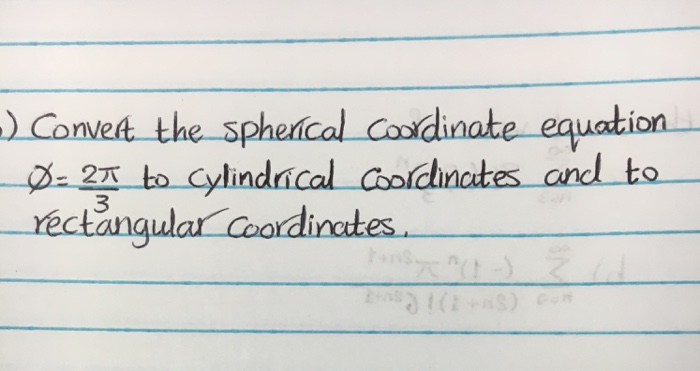 .) Convert the spherical coordinate equation
Ø = 2π/3 to cylindrical coordinates and to
rectangular coordinates.